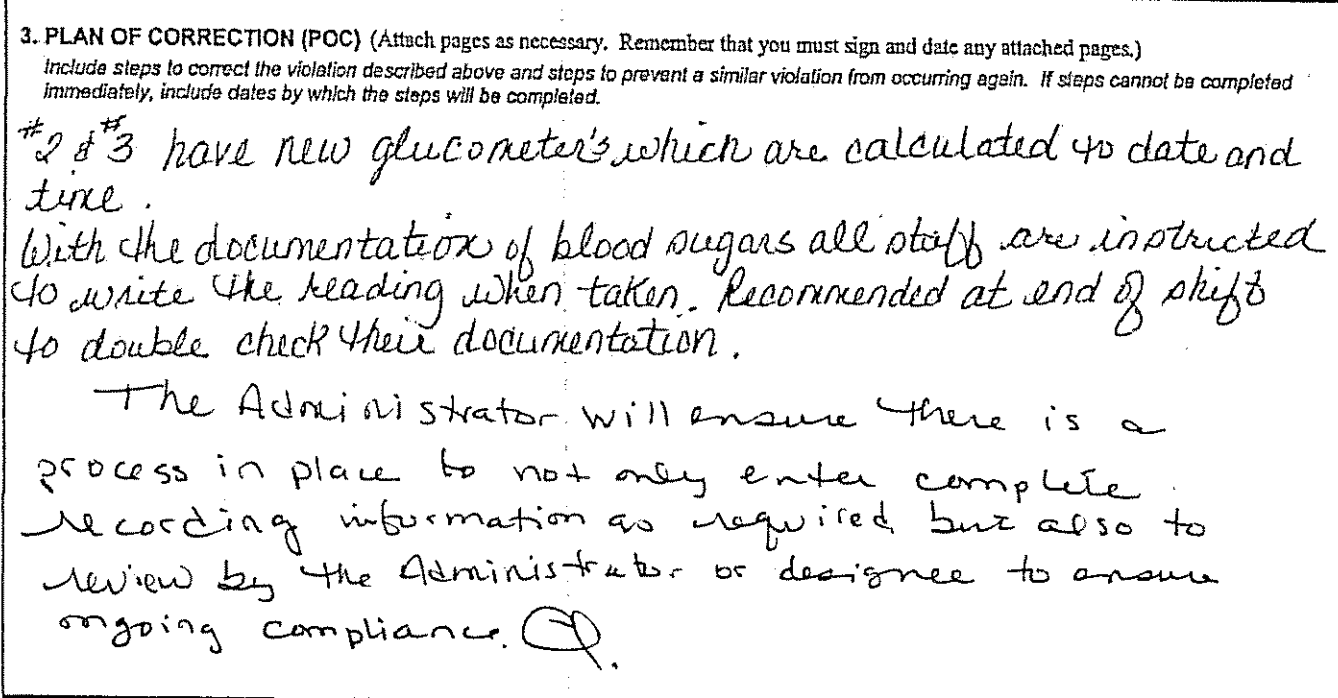 3. PLAN OF CORRECTION (POC) (Attach pages as necessary. Remember that you must sign and date any attached pages.)
Include steps to correct the violation described above and steps to prevent a similar violation from occurring again. If steps cannot be completed
immediately, include dates by which the steps will be completed.
#2 & #3 have new glucometer's which are calculated to date and
time.
With the documentation of blood sugars all staff are instructed
to write the reading when taken. Recommended at end of shift
to double check their documentation.
The Administrator will ensure there is a
process in place to not only enter complete
recording information as required but also to
review by the Administrator or designee to ensure
ongoing compliance.